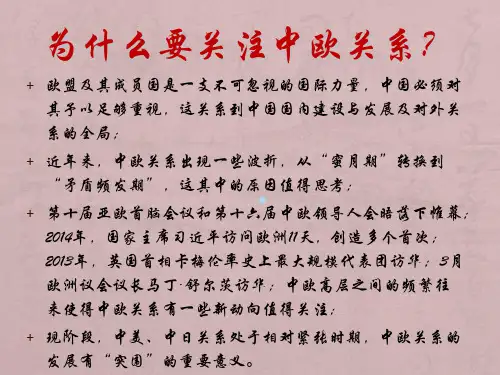 为什么要关注中欧关系？
+ 欧盟及其成员国是一支不可忽视的国际力量，中国必须对
其予以足够重视，这关系到中国国内建设与发展及对外关
系的全局；
+ 近年来，中欧关系出现一些波折，从“蜜月期”转换到
“矛盾频发期”，这其中的原因值得思考；
+ 第十届亚欧首脑会议和第十六届中欧领导人会晤落下帷幕；
2014年，国家主席习近平访问欧洲11天，创造多个首次；
2013年，英国首相卡梅伦率史上最大规模代表团访华；3月
欧洲议会议长马丁·舒尔茨访华；中欧高层之间的频繁往
来使得中欧关系有一些新动向值得关注；
+ 现阶段，中美、中日关系处于相对紧张时期，中欧关系的
发展有“突围”的重要意义。